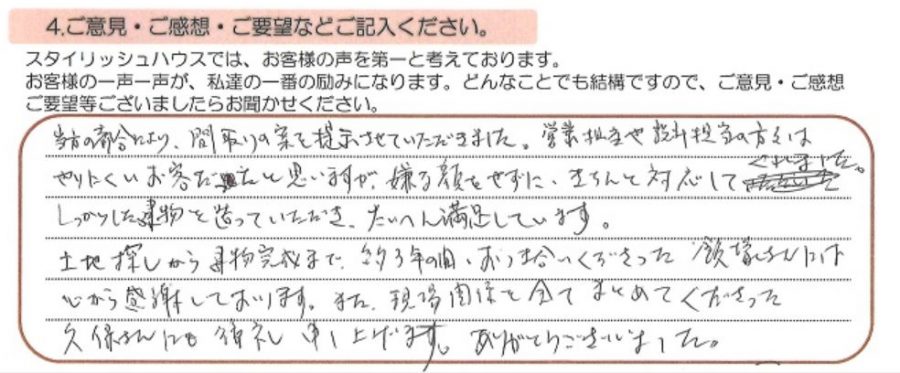 4.ご意見・ご感想・ご要望などご記入ください。
スタイリッシュハウスでは、お客様の声を第一と考えております。
お客様の一声一声が、私達の一番の励みになります。どんなことでも結構ですので、ご意見・ご感想
ご要望等ございましたらお聞かせください。
当方の都合により、間取りの案を提示させていただきました。営業担当や設計担当の方々は
やりにくいお客だったと思いますが、嫌な顔をせずに、きちんと対応してくれました。
しっかりした建物を造っていただき、たいへん満足しています。
土地探しから建物完成まで、約3年の間、おつき合いくださった さんには
心から感謝しております。また、現場関係を全てまとめてくださった
久保さんにも御礼申し上げます。ありがとうございました。